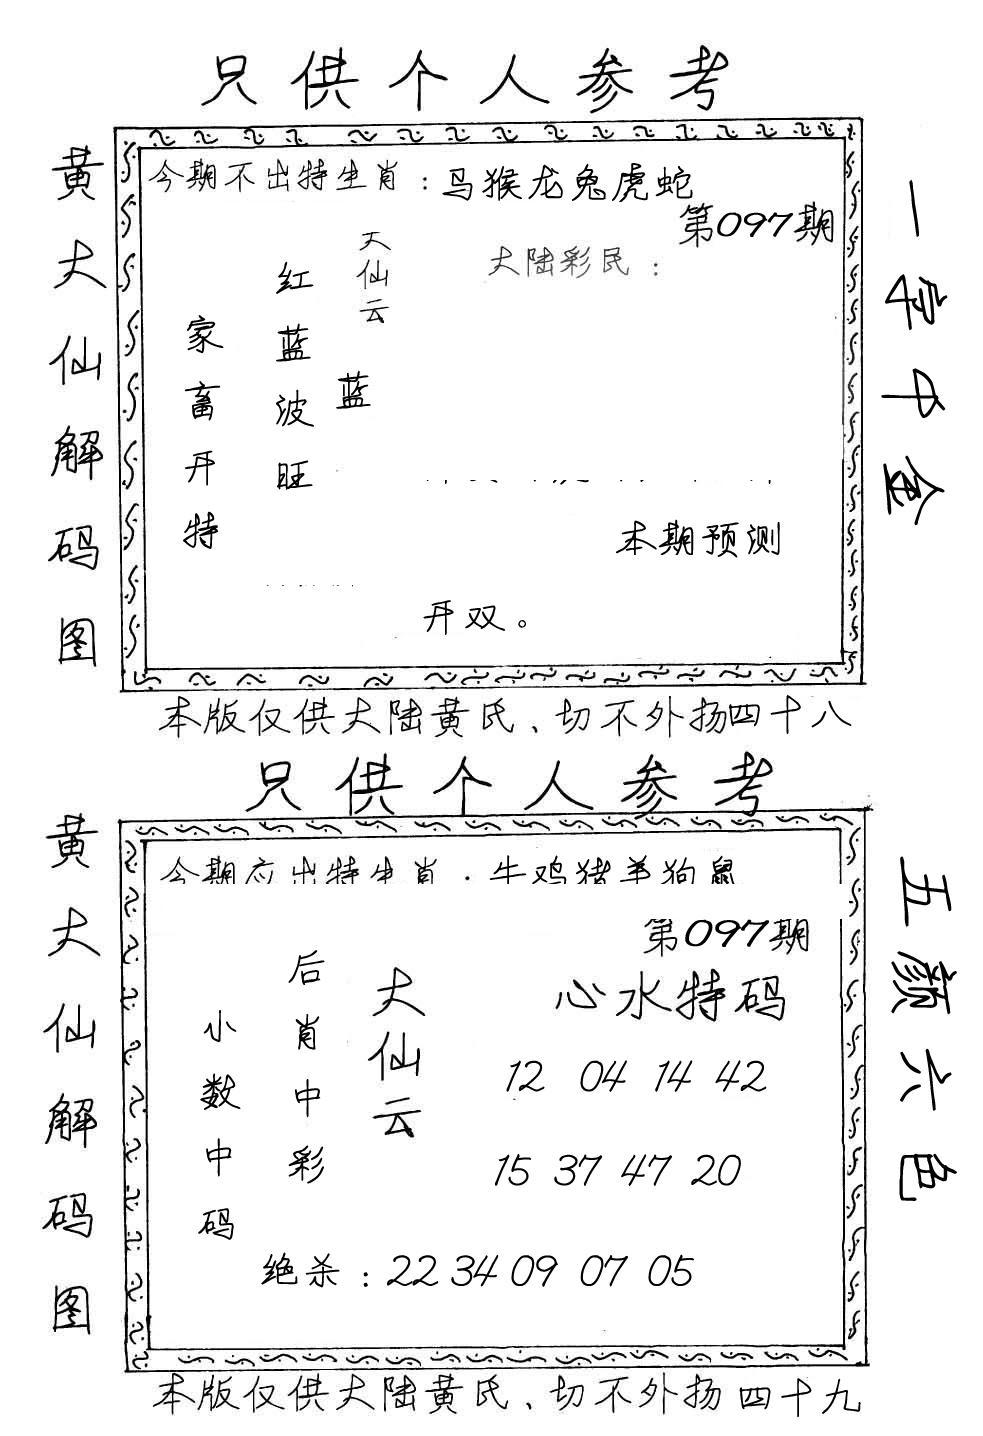 只供个人参考
黄大仙解码图
今期不出特生肖：马猴龙兔虎蛇
第097期
大陆彩民：
大仙云
蓝
红蓝波旺
家畜开特
本期预测
开双。
一字中金
本版仅供大陆黄氏、切不外扬四十八
只供个人参考
黄大仙解码图
今期应出特生肖：牛鸡猪羊狗鼠
第097期
心水特码
12 04 14 42
15 37 47 20
大仙云
后肖中彩
小数中码
绝杀：22 34 09 07 05
五颜六色
本版仅供大陆黄氏、切不外扬四十九